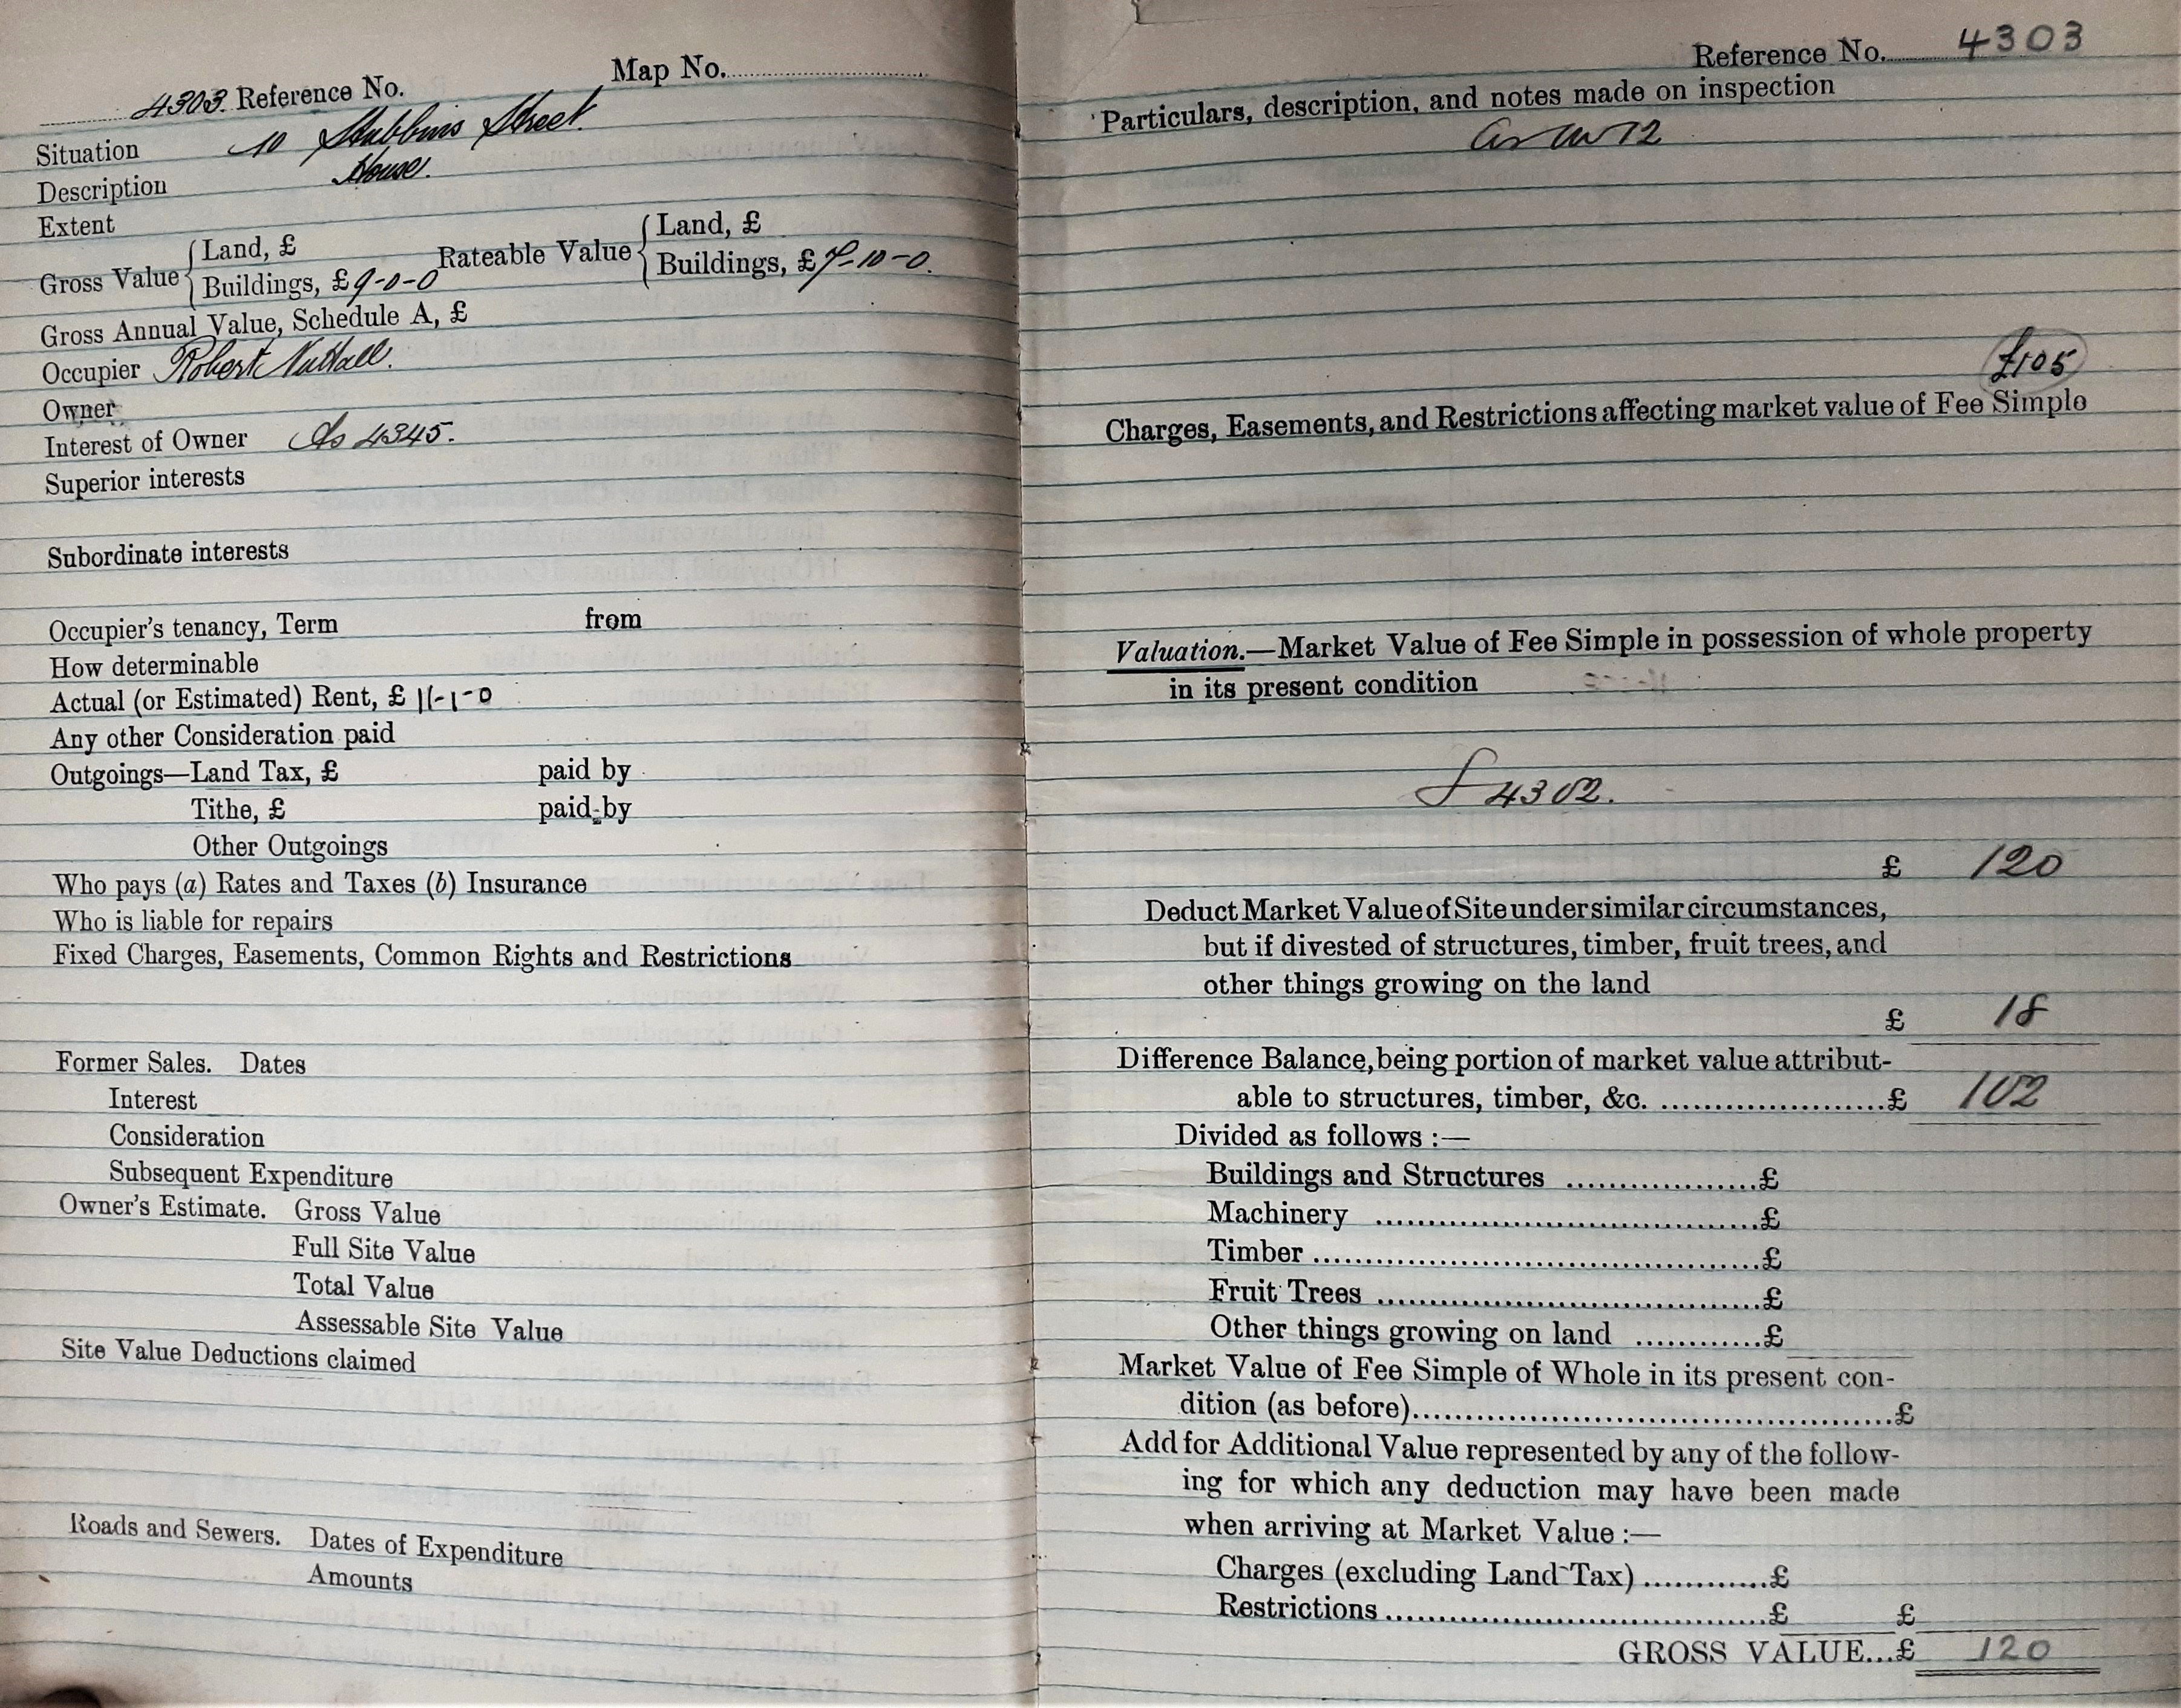 Map No.
4303. Reference No.
Situation 10 Stubbins Street.
Description House.
Extent
Gross Value { Land, £ Rateable Value { Land, £
Buildings, £ 9-0-0 Buildings, £ 7-10-0.
Gross Annual Value, Schedule A, £
Occupier Robert Nuttall.
Owner
Interest of Owner As 4345.
Superior interests
Subordinate interests
Occupier's tenancy, Term from
How determinable
Actual (or Estimated) Rent, £ 11-1-0
Any other Consideration paid
Outgoings—Land Tax, £ paid by
Tithe, £ paid by
Other Outgoings
Who pays (a) Rates and Taxes (b) Insurance
Who is liable for repairs
Fixed Charges, Easements, Common Rights and Restrictions
Former Sales. Dates
Interest
Consideration
Subsequent Expenditure
Owner's Estimate. Gross Value
Full Site Value
Total Value
Assessable Site Value
Site Value Deductions claimed
Roads and Sewers. Dates of Expenditure
Amounts
Reference No. 4303
Particulars, description, and notes made on inspection
as 12
£105
Charges, Easements, and Restrictions affecting market value of Fee Simple
Valuation.—Market Value of Fee Simple in possession of whole property
in its present condition
4302.
£ 120
Deduct Market Value of Site under similar circumstances,
but if divested of structures, timber, fruit trees, and
other things growing on the land
£ 18
Difference Balance, being portion of market value attribut-
able to structures, timber, &c. ........................£ 102
Divided as follows :—
Buildings and Structures ....................£
Machinery ........................................£
Timber ..............................................£
Fruit Trees ........................................£
Other things growing on land .............£
Market Value of Fee Simple of Whole in its present con-
dition (as before)..................................................£
Add for Additional Value represented by any of the follow-
ing for which any deduction may have been made
when arriving at Market Value :—
Charges (excluding Land Tax) .............£
Restrictions ........................................£ £
GROSS VALUE...£ 120